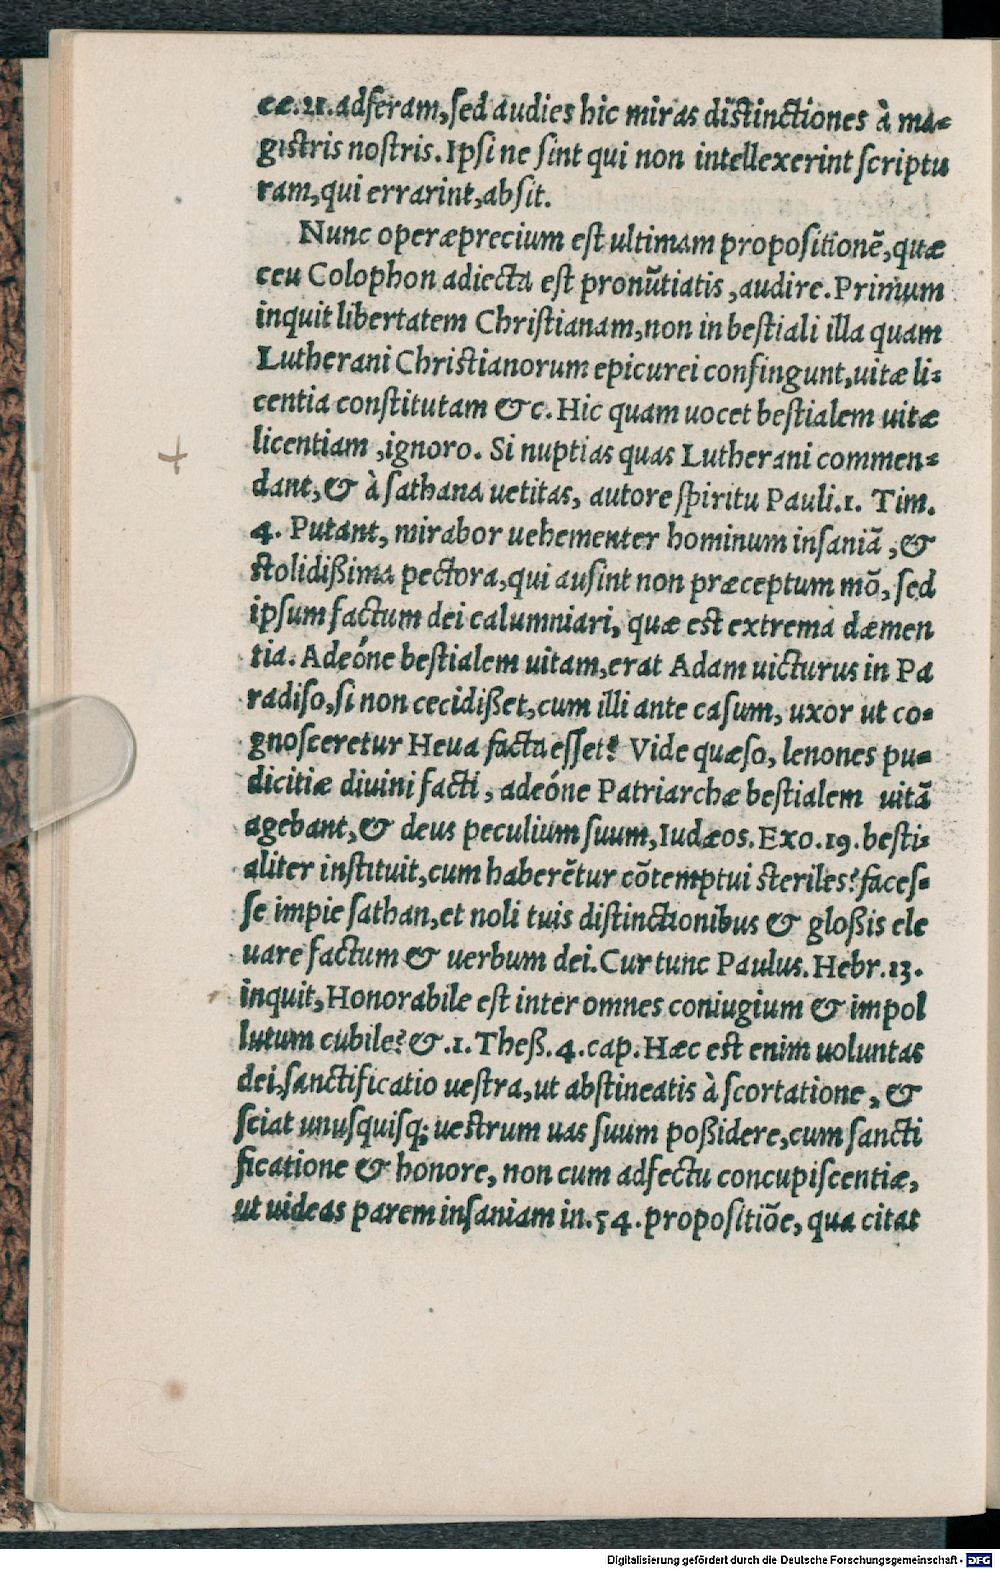 cæ.21.adferam,sed audies hic miras distinctiones à ma-
gistris nostris.Ipsi ne sint qui non intellexerint scriptu
ram,qui errarint,absit.
Nunc operæprecium est ultimam propositionē,quæ
ceu Colophon adiecta est pronūtiatis,audire.Primum
inquit libertatem Christianam,non in bestiali illa quam
Lutherani Christianorum epicurei confingunt,uitæ li-
centia constitutam &c. Hic quam uocet bestialem uitæ
licentiam,ignoro. Si nuptias quas Lutherani commen-
dant,& à sathana uetitas, autore spiritu Pauli.1. Tim.
4. Putant, mirabor uehementer hominum insaniā,&
stolidißima pectora,qui ausint non præceptum mō, sed
ipsum factum dei calumniari, quæ est extrema dæmen
tia. Adeóne bestialem uitam,erat Adam uicturus in Pa
radiso,si non cecidißet,cum illi ante casum, uxor ut co-
gnosceretur Heua facta esset? Vide quæso, lenones pu-
dicitiæ diuini facti, adeóne Patriarchæ bestialem uitā
agebant,& deus peculium suum,Iudæos. Exo.19. besti-
aliter instituit,cum haberētur cōtemptui steriles? faces-
se impie sathan,et noli tuis distinctionibus & gloßis ele
uare factum & uerbum dei. Cur tunc Paulus. Hebr.13.
inquit, Honorabile est inter omnes coniugium & impol
lutum cubile? &.1. Theß. 4. cap. Hæc est enim uoluntas
dei,sanctificatio uestra,ut abstineatis à scortatione, &
sciat unusquisq; uestrum uas suum poßidere,cum sancti
ficatione & honore, non cum adfectu concupiscentiæ,
ut uideas parem insaniam in.54. propositiōe, qua citat
Digitalisierung gefördert durch die Deutsche Forschungsgemeinschaft - DFG